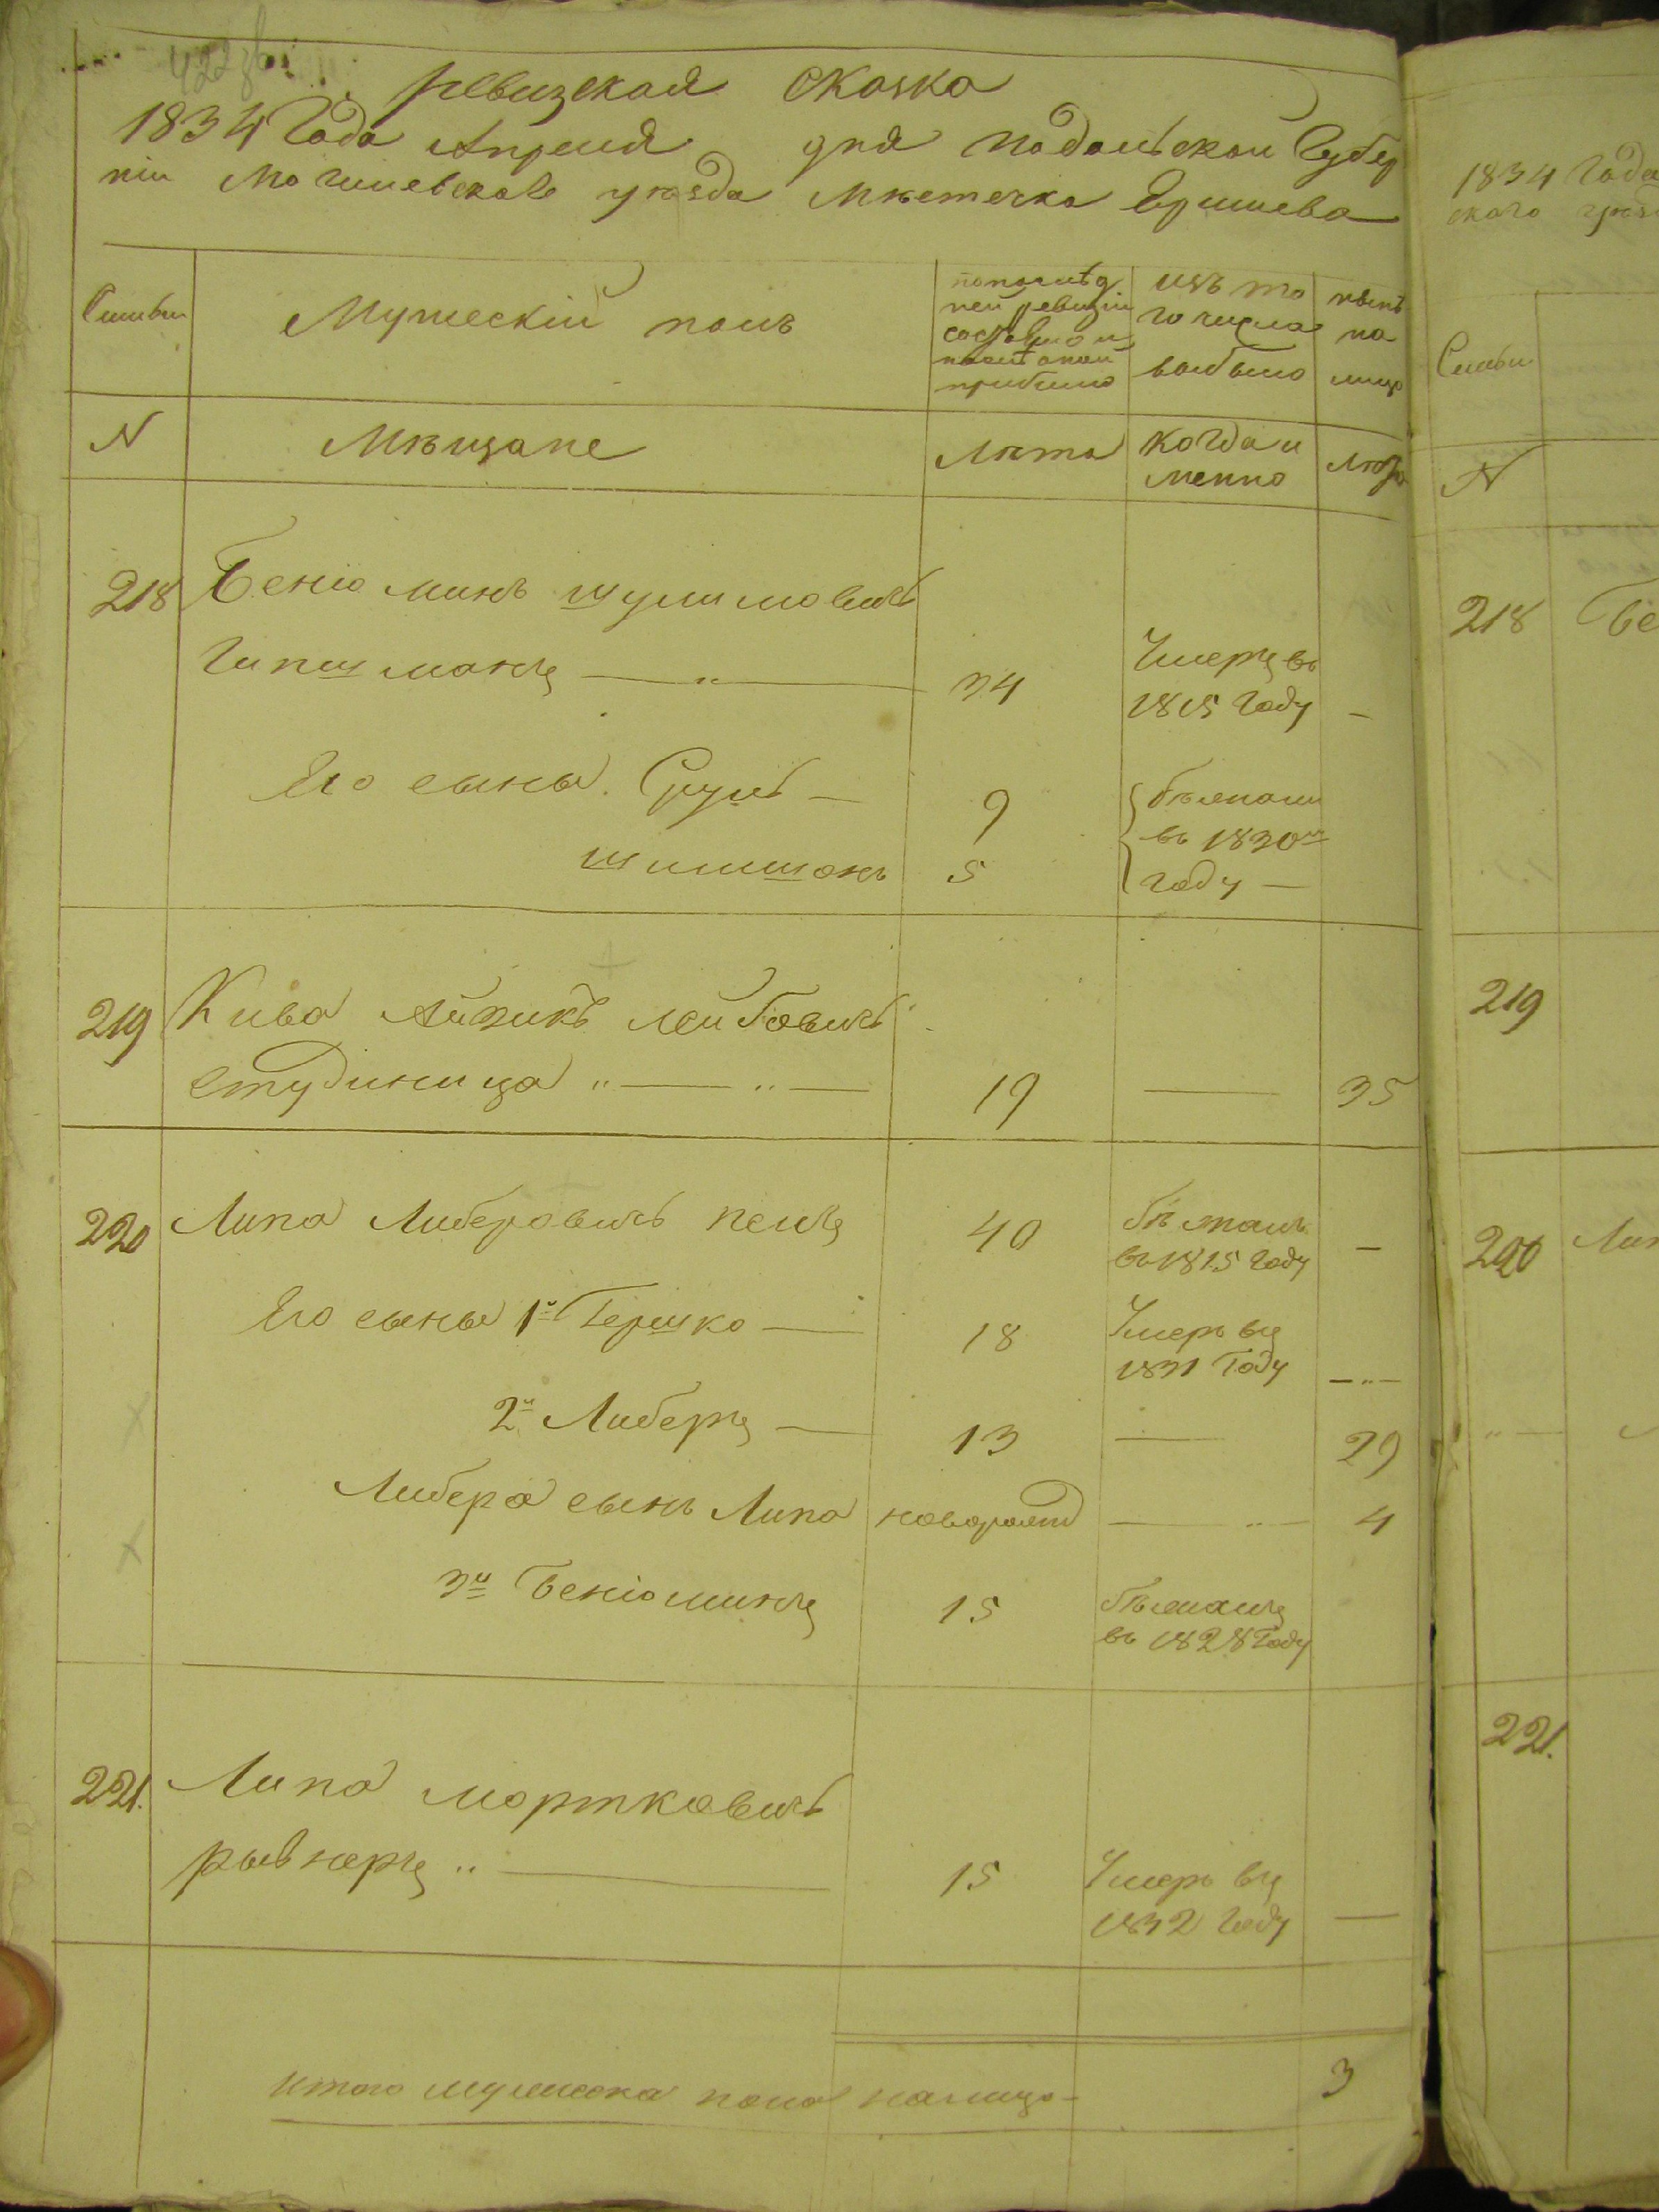 ревизская сказка
1834 Года Апреля дня Подольской Губер
ніи Могилевскаго уѣзда Мѣстечка Ярышева
Семьи
Мужескій полъ
по послѣд
ней ревизіи
состояло и
послѣ оной
прибыло
изъ то
го числа
выбыло
нынѣ
на
лицо
N
Мѣщане
Лѣта
когда и
менно
Лѣта
218 Беніоминъ Шулимовичъ
Гипшманъ — „ —
34
Умеръ въ
1815 Году
—
Его сыны. Сруль —
9
бѣжали
въ 1830м
году —
Шлишонъ
5
219 Кива Айзикъ Лейбовичъ
Студиница „ — „ —
19
—
35
220 Липа Либеровичъ Пелц
40
бѣжалъ
въ 1815 Году
—
Его сыны 1й Гершко —
18
Умеръ въ
1831 Году
— „ —
2й Либеръ —
13
—
29
Либера сынъ Липа
новорожд
— „ —
4
3й Беніоминъ
15
бѣжалъ
въ 1828 Году
221. Липа Мортковичъ
рывнеръ „ —
15
Умеръ въ
1832 Году
—
итого мужеска пола налицо —
3
1834 Года
ского уѣз
Семьи
N
218 Бе
219
220 Лип
221.